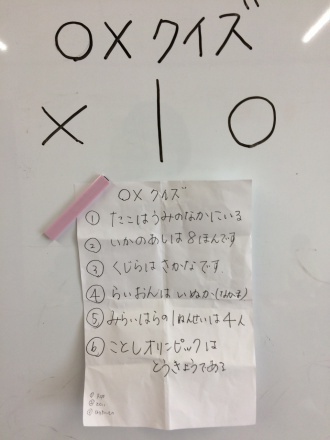 ○×クイズ
× | ○
○×クイズ
① たこはうみのなかにいる
② いかのあしは8ほんです
③ くじらはさかなです
④ らいおんはいぬか(なかま)
⑤ みらいはらの1ねんせいは4人
⑥ ことしオリンピックは
とうきょうである